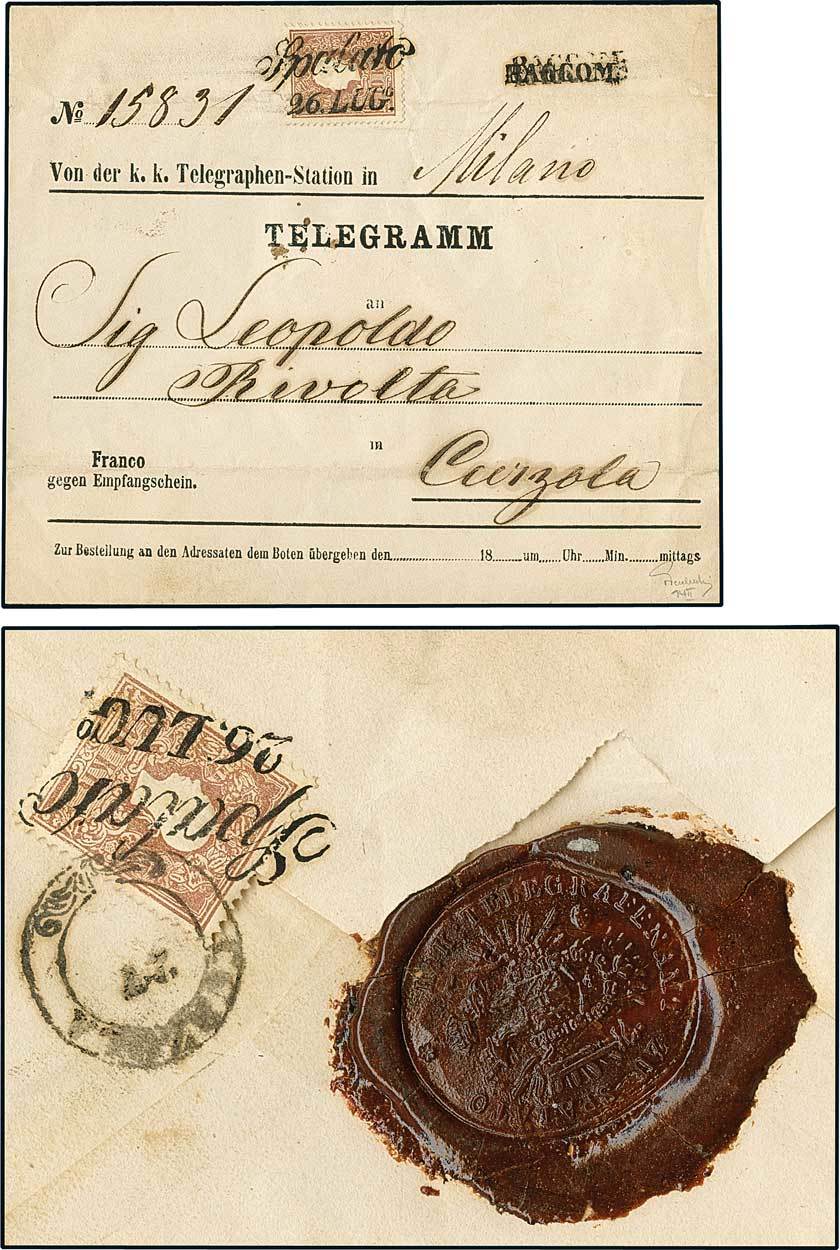 Spalato
26. LUG:
RACCOM.
№ 15831
Von der k. k. Telegraphen-Station in Milano
TELEGRAMM
an
Sig Leopoldo
Rivolta
in
Curzola
Franco
gegen Empfangschein.
Zur Bestellung an den Adressaten dem Boten übergeben den 18 um Uhr Min. mittags
26. LUG:
Spalato
TELEGRAFEN
ZU SPALATO